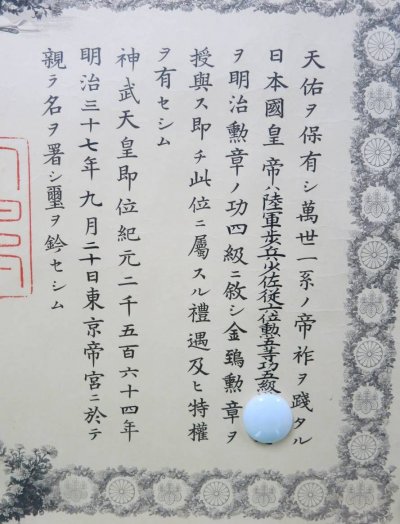 天佑ヲ保有シ萬世一系ノ帝祚ヲ踐タル
日本國皇帝ハ陸軍歩兵少佐從六位勲五等功五級
ヲ明治勲章ノ功四級ニ敘シ金鵄勲章ヲ
授與ス即チ此位ニ屬スル禮遇及ヒ特權
ヲ有セシム
神武天皇即位紀元二千五百六十四年
明治三十七年九月二十日東京帝宮ニ於テ
親ラ名ヲ署シ璽ヲ鈐セシム